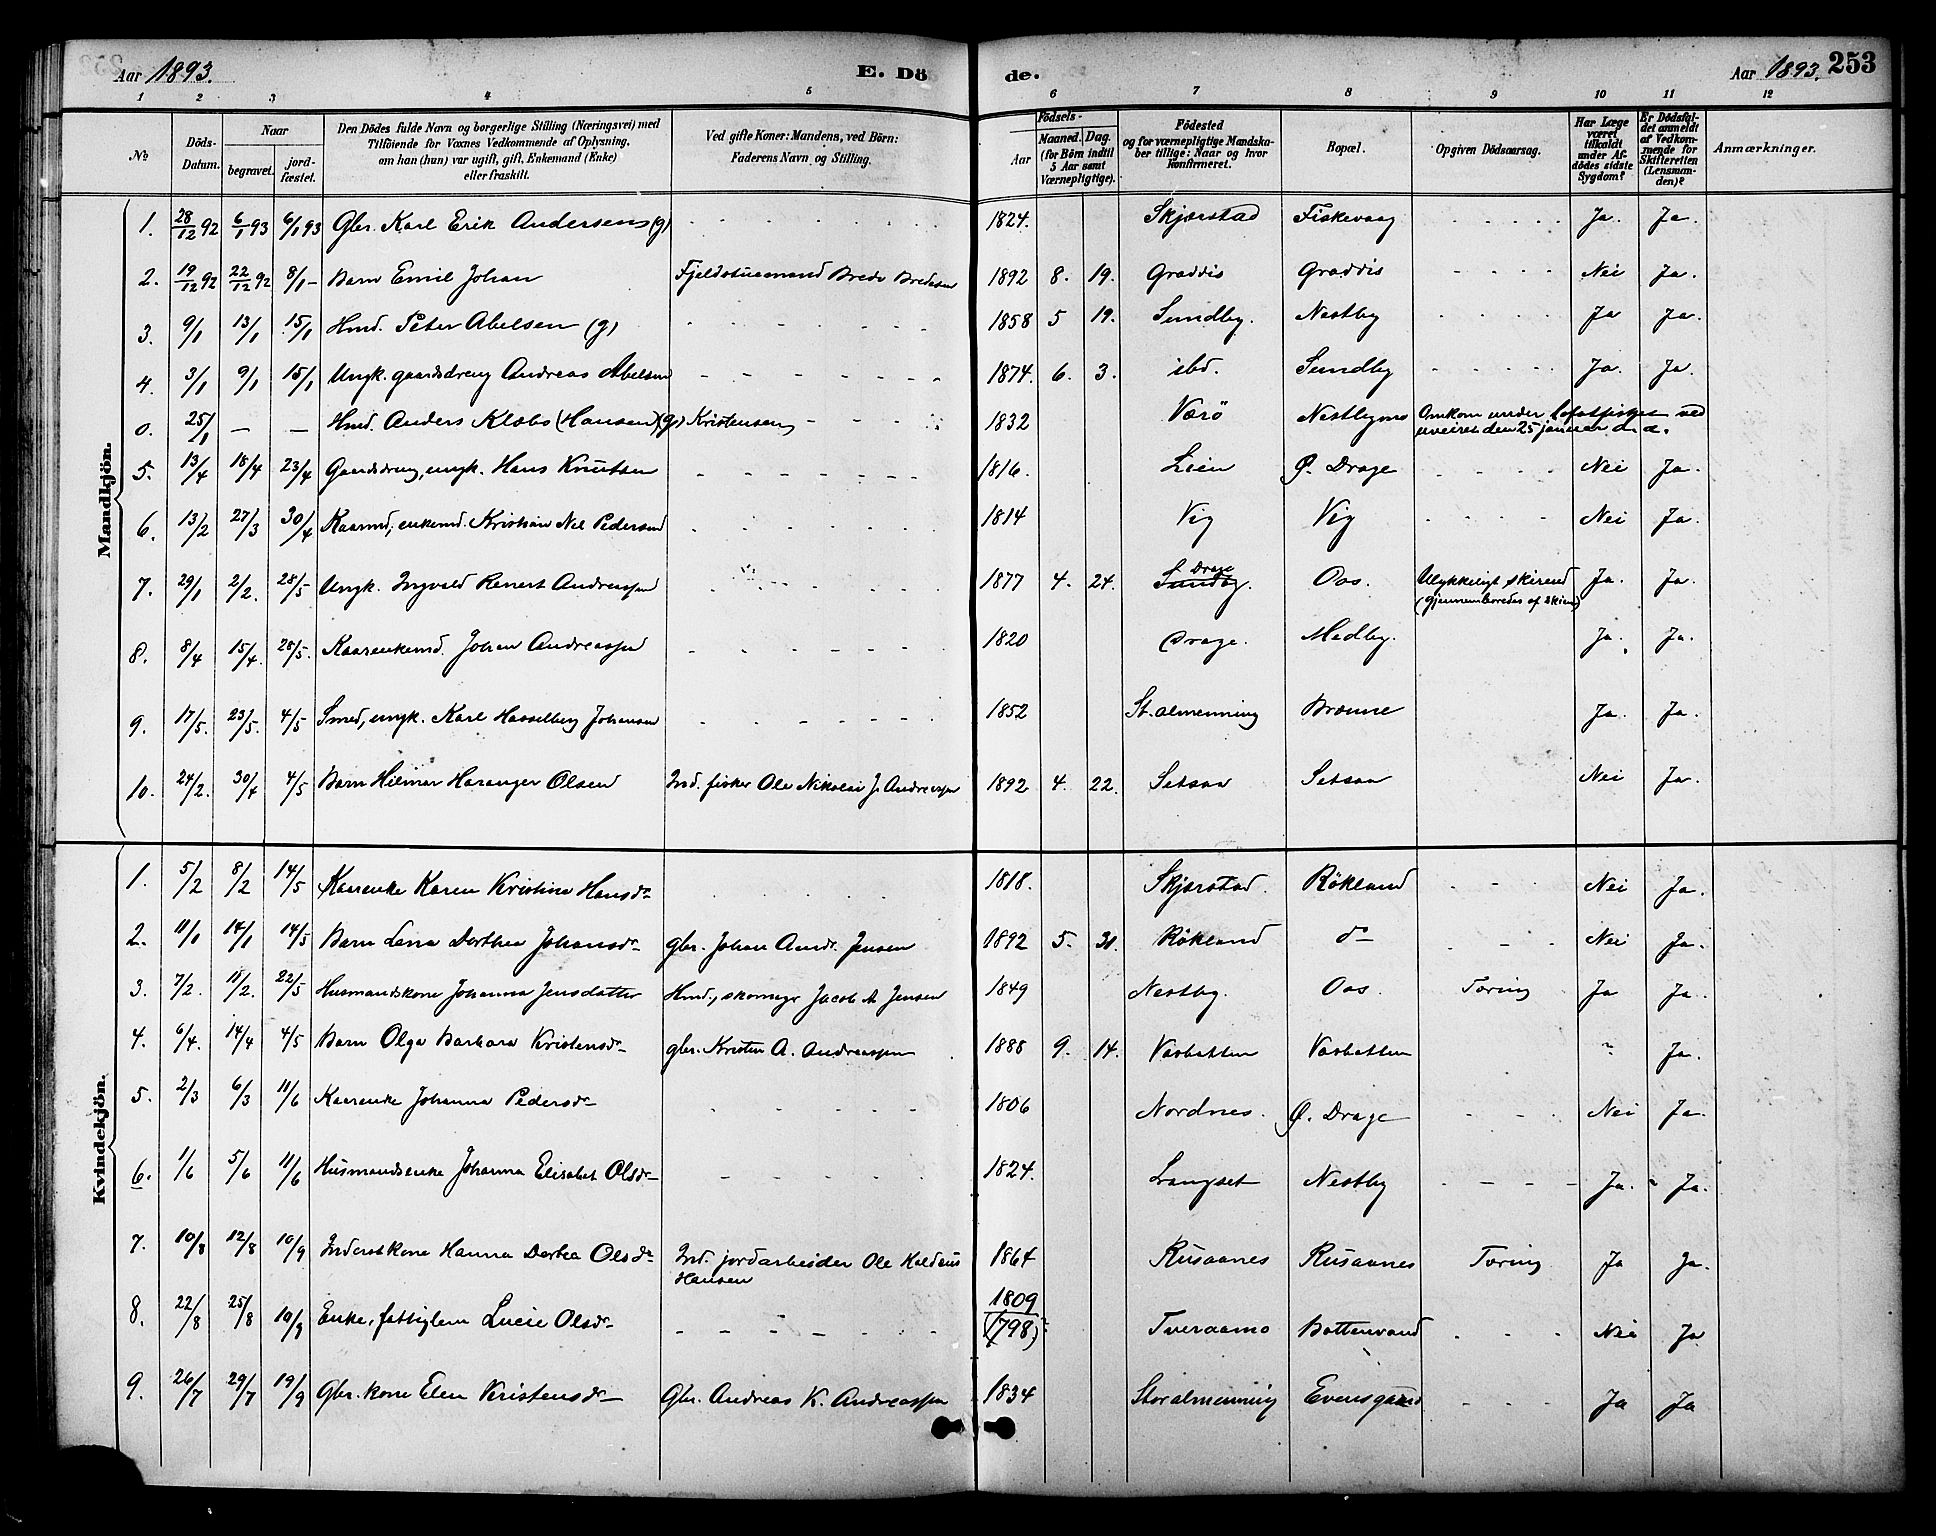 Aar 1893. E. Dö de. Aar 1893. 253
1 2 3 4 5 6 7 8 9 10 11 12
No. Döds-Datum. Naar begravet. jord-fæstet. Den Dödes fulde Navn og borgerlige Stilling (Næringsvei) med Tilföiende for Voxnes Vedkommende af Oplysning, om han (hun) var ugift, gift, Enkemand (Enke) eller fraskilt. Ved gifte Koner: Mandens, ved Börn: Faderens Navn og Stilling. Födsels- Aar Maaned. Dag. (for Börn indtil 5 Aar samt Værnepligtige). Födested og for værnepligtige Mandskaber tillige: Naar og hvor konfirmeret. Bopæl. Opgiven Dödsaarsag. Har Læge været tilkaldt under Afdödes sidste Sygdom? Er Dödsfaldet anmeldt af Vedkommende for Skifteretten (Lensmanden)? Anmærkninger.
Mandkjön.
1. 28/12 92 6/1 93 6/1 93 Gbr. Karl Erik Andersen (g) 1824. Skjærstad Fiskevaag Ja. Ja.
2. 19/12 92 22/12 92 8/1 - Barn Emil Johan Fjeldstuemand Brede Bredesen 1892 8. 19. Graddis Graddis Nei Ja.
3. 9/1 13/1 15/1 Hmd. Peter Abelsen (g) 1858 5 19. Sundby. Nestby Ja Ja.
4. 3/1 9/1 15/1 Ungk. gaardsdreng Andreas Abelsen 1874. 6. 3. ibd. Sundby Ja. Ja.
0. 25/1 — — Hmd. Anders Klæbo (Hansen) (g) Kristensen 1832 Værö Omkom under Lofotfisket ved uveiret den 25 januar d. a.
5. 13/4 18/4 23/4 Gaardsdreng, ungk. Hans Knutsen 1816. Leein Ø. Drage Nei Ja.
6. 13/2 27/3 30/4 Kaarmd, enkemd. Kristian Nel Pedersen 1814 Vig Vig Nei Ja.
7. 29/1 2/2. 28/5- Ungk. Ingvald Renert Andreassen 1877 4. 24. Sundby. Drage Oos. Ulykkeligt skirend (gjennemboredes af skien) Ja. Ja.
8. 8/4 15/4. 28/5. Kaarenkemd. Johan Andreassen 1820 Drage. Medby. Ja. Ja.
9. 17/5. 23/5. 4/5 Smed, ungk. Karl Hasselberg Johansen 1852 St. almenning Brænne Ja. Ja.
10. 24/2. 30/4 4/5 Barn Hilmar Haranger Olsen Ind. fisker Ole Nikolai J. Andreassen 1892 4. 22. Setsaa Setsaa Nei Ja.
Kvindekjön.
1. 5/2 8/2 14/5 Kaarenke Karen Kristina Hansdr 1818. Skjærstad. Rökland Nei Ja.
2. 11/1 14/1 14/5 Barn Lena Dorthea Johansdr gbr. Johan Andr. Jensen 1892 5. 31. Rökland do Nei Ja.
3. 7/2. 11/2. 22/5 Husmandskone Johanna Jensdatter Hmd., skomagr Jacob A Jensen 1849 Nestby. Oos. Tæring Ja Ja.
4. 6/4. 14/4 4/5 Barn Olga Barbara Kristensdr gbr. Kristen A. Andreassen 1888 9. 14. Vasbotten Vasbotten " Ja.
5. 2/3 6/3 11/6 Kaarenke Johanna Pedersdr 1806 Nordnes. Ø. Drage Nei Ja.
6. 1/6 5/6 11/6 Husmandsenke Johanna Elisabet Olsdr 1824. Langset Nestby Ja. Ja.
7. 10/8 12/8 10/9 Inderstkone Hanna Dortea Olsdr Ind. jordarbeider Ole Kaldæus Hansen 1864 Rusaanes Rusaanes Tæring Ja Ja.
8. 22/8 25/8 10/9 Enke, fattiglem Lucie Olsdr 1809 (1798)? Tveraamo Bottenvand Nei Ja
9. 26/7 29/7 19/9 Gbr. kone Elen Kristensdr Gbr. Andreas K. Andreassen 1834 Storalmenning Evensgaard Ja Ja